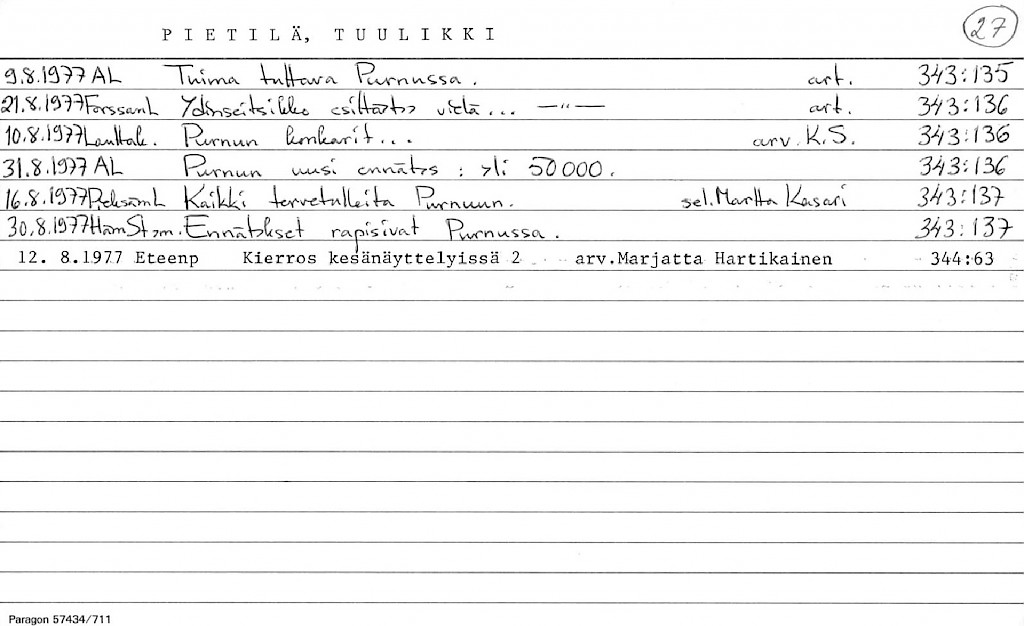 PIETILÄ, TUULIKKI
27
9.8.1977 AL Tuima tuttava Purnussa. art. 343:135
21.8.1977 ForssanL Ydinseitsikko esittäytyy vielä... —"— art. 343:136
10.8.1977 Lauttak. Purnun konkarit... arv. K.S. 343:136
31.8.1977 AL Purnun uusi ennätys : yli 50000. 343:136
16.8.1977 PieksämL Kaikki tervetulleita Purnuun. sel. Martta Kasari 343:137
30.8.1977 HämSan. Ennätykset rapisivat Purnussa. 343:137
12. 8.1977 Eteenp Kierros kesänäyttelyissä 2 arv.Marjatta Hartikainen 344:63
Paragon 57434/711